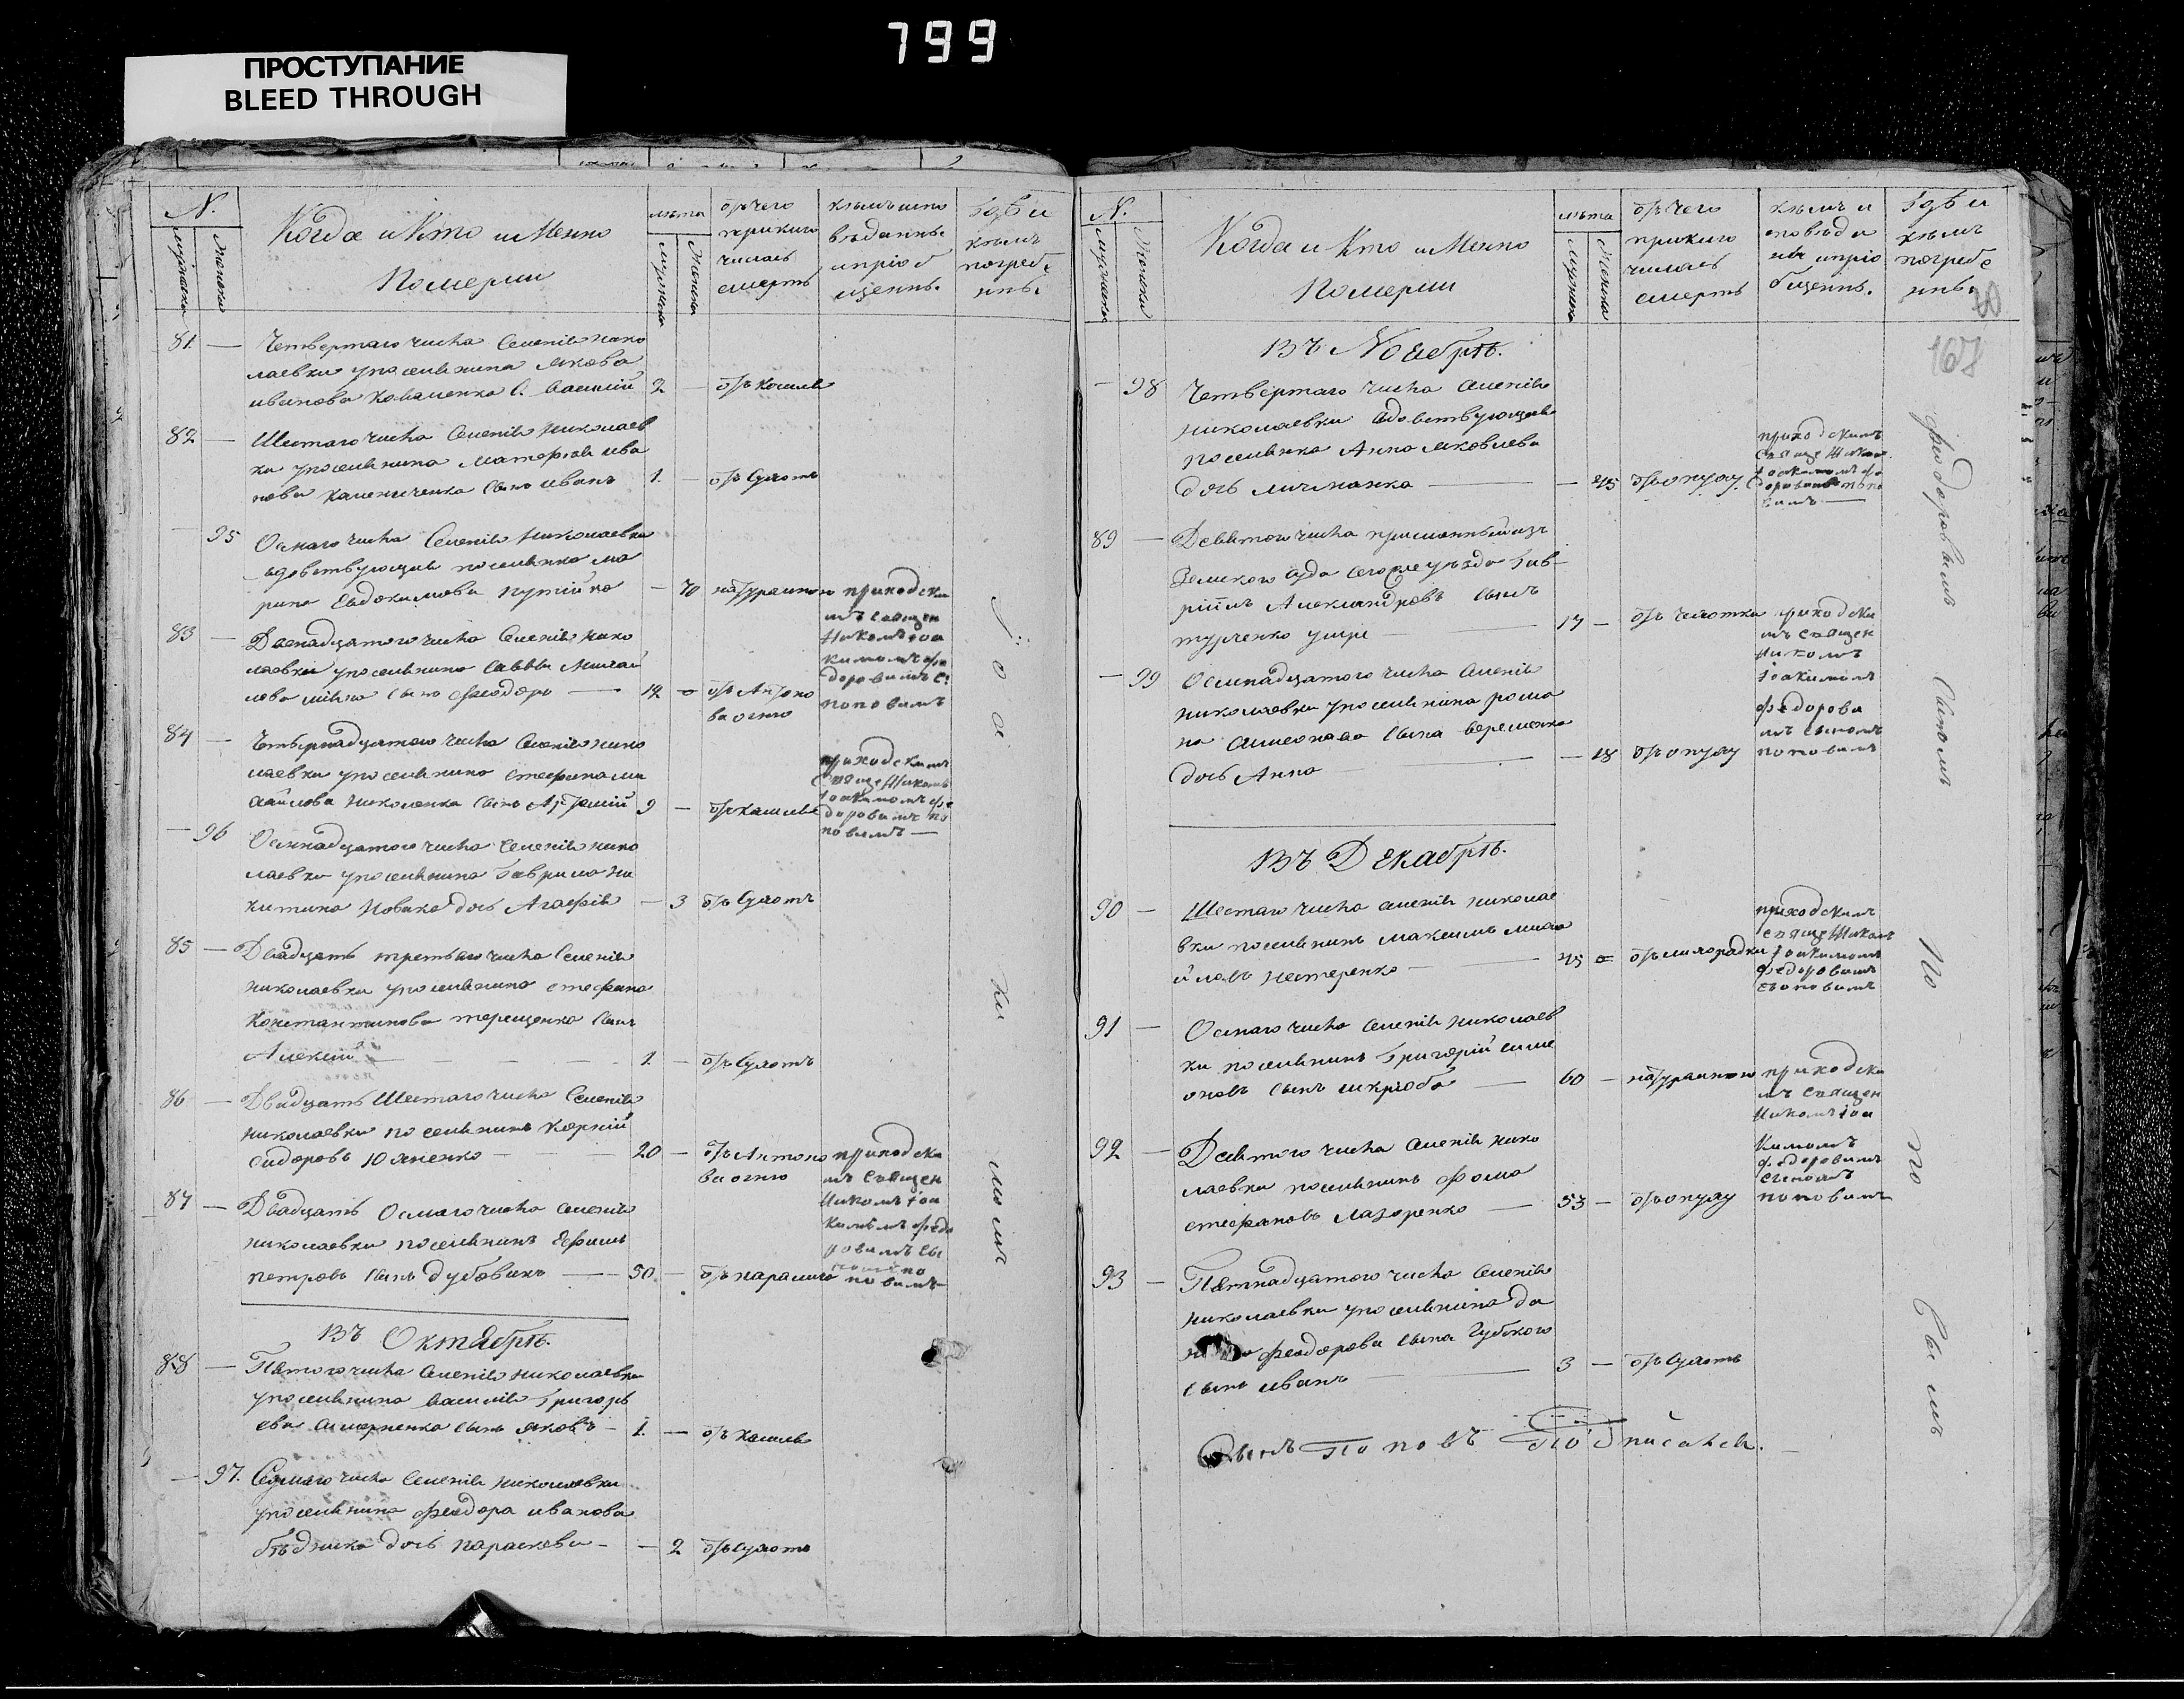 799
ПРОСТУПАНИЕ
BLEED THROUGH
N.
мужска
женска
Когда и Кто и Менно
Померли
лѣта
мужеска
Женска
отъ чего
приключи
числась
смерть
кѣмъ испо
вѣданы
и пріоб
щенны
Гдѣ и
кѣмъ
погребе
нны
81 — Четвертаго числа Селенія Нико
лаевки у поселянина Якова
Иванова Коваленка С. Василій 2 — отъ Кашля
82 — Шестаго числа Селенія Николаев
ки у поселянина Матерова? Ива
нова Калениченка Сынъ Иванъ 1. — отъ Сухотъ
— 95 Осмаго числа Селенія Николаевки
вдовствующая поселянка Ма
рина Евдокимова — 70 натурально приходски
мъ Священ
никомъ Іоа
кимомъ Фе
доровымъ С:
поповымъ
83 — Двенадцатаго числа Селенія Нико
лаевки у поселянина Саввы Михай
лова Сынъ Феодоръ — 12 — отъ Антоно
ва огню
84 — Четырнадцатаго числа Селенія Нико
лаевки у поселянина Стефана Ми
хайлова Николенка Сынъ Артемій 9 — отъ кашля
приходскимъ
Священникомъ
Іоакимомъ Фе
доровымъ По
повымъ —
— 96 Осмнадцатаго числа Селенія Нико
лаевки у поселянина Гаврила Ни
китина Новака дочь Агафія — 3 отъ Сухотъ
85 — Двадцать третьяго числа Селенія
Николаевки у поселянина Стефана
Константинова Терещенка Сынъ
Алексій — 1 — отъ Сухотъ
86 — Двадцать Шестаго числа Селенія
Николаевки поселянинъ Корній
Сидоровъ Юхненко — 20 — отъ Антоно
ва огню
приходски
мъ Священ
никомъ Іоа
кимомъ Федо
ровымъ Сы
номъ По
повымъ
87 — Двадцать Осмаго числа Селенія
Николаевки поселянинъ Ефимъ
Петровъ Сынъ Дубовикъ — 50 — отъ паралича
Іоа
ки
момъ
Въ Октябрѣ.
88 — Пятаго числа Селенія Николаевки
у поселянина Василія Григорь
ева Сынъ Яковъ — 1. — отъ кашля
— 97. Седмаго числа Селенія Николаевки
у поселянина Феодора Иванова
Бѣдника дочь Параскева — — 2 отъ Сухотъ
N.
Мужеска
Женска
Когда и Кто и Менно
Померли
лѣта
мужеска
Женска
отъ чего
приклю
чилась
смерть
кѣмъ и
сповѣда
ны и пріо
бщенны.
Гдѣ и
кѣмъ
погребе
нны
167
Въ Ноябрѣ.
— 98 Четвертаго числа Селенія
Николаевки вдовствующая
поселянка Анна Яковлева
дочь Личманка — — 45 отъ опуху
приходскимъ
Священником
Іоакимомъ Фе
доровымъ По
вымъ —
89 — Девятаго числа присланный изъ
Земскаго Суда Сего же уѣзда Гав
ріилъ Александровъ Сынъ
Турченко умре — 17 — отъ чехотки
приходски
мъ Священ
никомъ
Іоакимомъ
Федорови
мъ Сыномъ
поповымъ
— 99 Осмнадцатаго числа Селенія
Николаевки у поселянина Рома
на Симеонова Сына Веременка
дочь Анна — — 18 отъ опуху
Въ Декабрѣ.
90 — Шестаго числа Селенія Николае
вки поселянинъ Максимъ Миха
йловъ Нестеренко — 45 — отъ лихорадки
приходскимъ
Священником
Іоакимомъ
Федоровымъ
С. Поповымъ
91 — Осмаго числа Селенія Николаев
ки поселянинъ Григорій Симе
оновъ Сынъ Шкряоба — 60 — натурально
приходски
мъ Священ
никомъ Іоа
кимомъ
Федоровымъ
Сыномъ
поповымъ
92 — Девятаго числа Селенія Нико
лаевки поселянинъ Фома
Стефановъ Лазоренко — 53 — отъ опуху
93 — Пятнадцатаго числа Селенія
Николаевки у поселянина Да
Феодорова Сына Губского
Сынъ Иванъ — 3 — отъ Сухотъ
Федоровымъ Сыномъ По по вымъ
Поповъ Подписался.